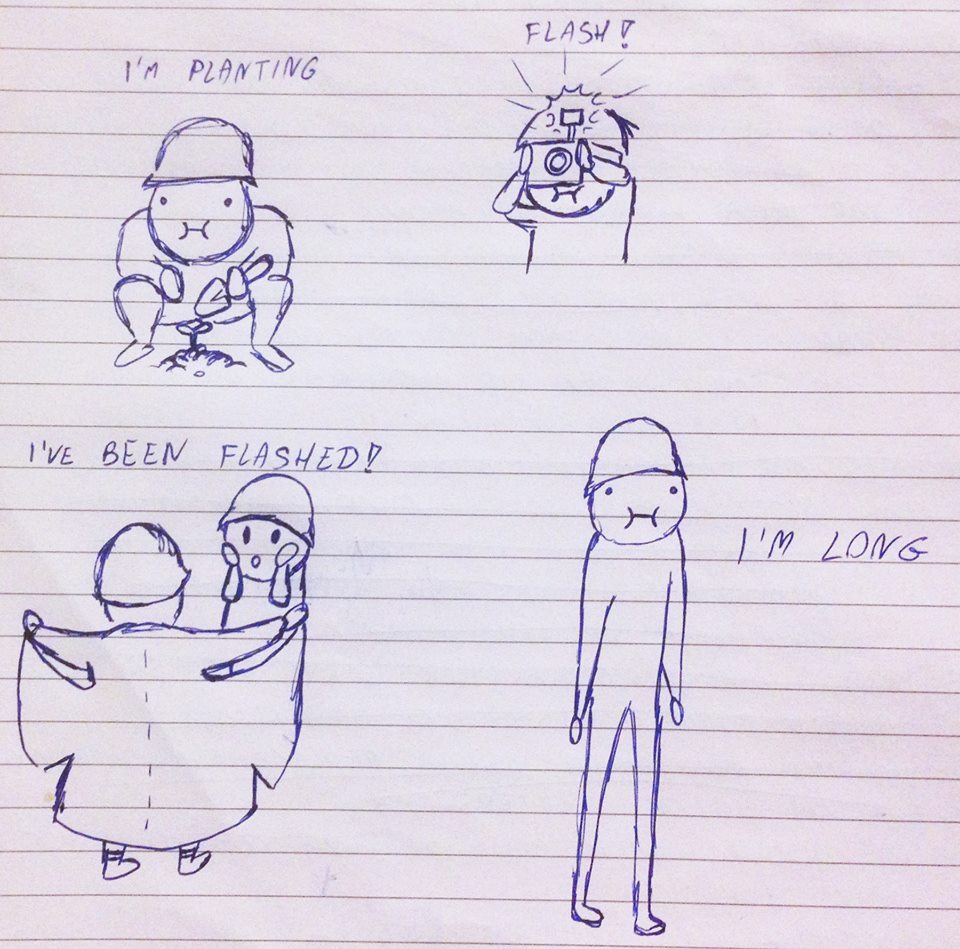 I'M PLANTING
FLASH!
I'VE BEEN FLASHED!
I'M LONG